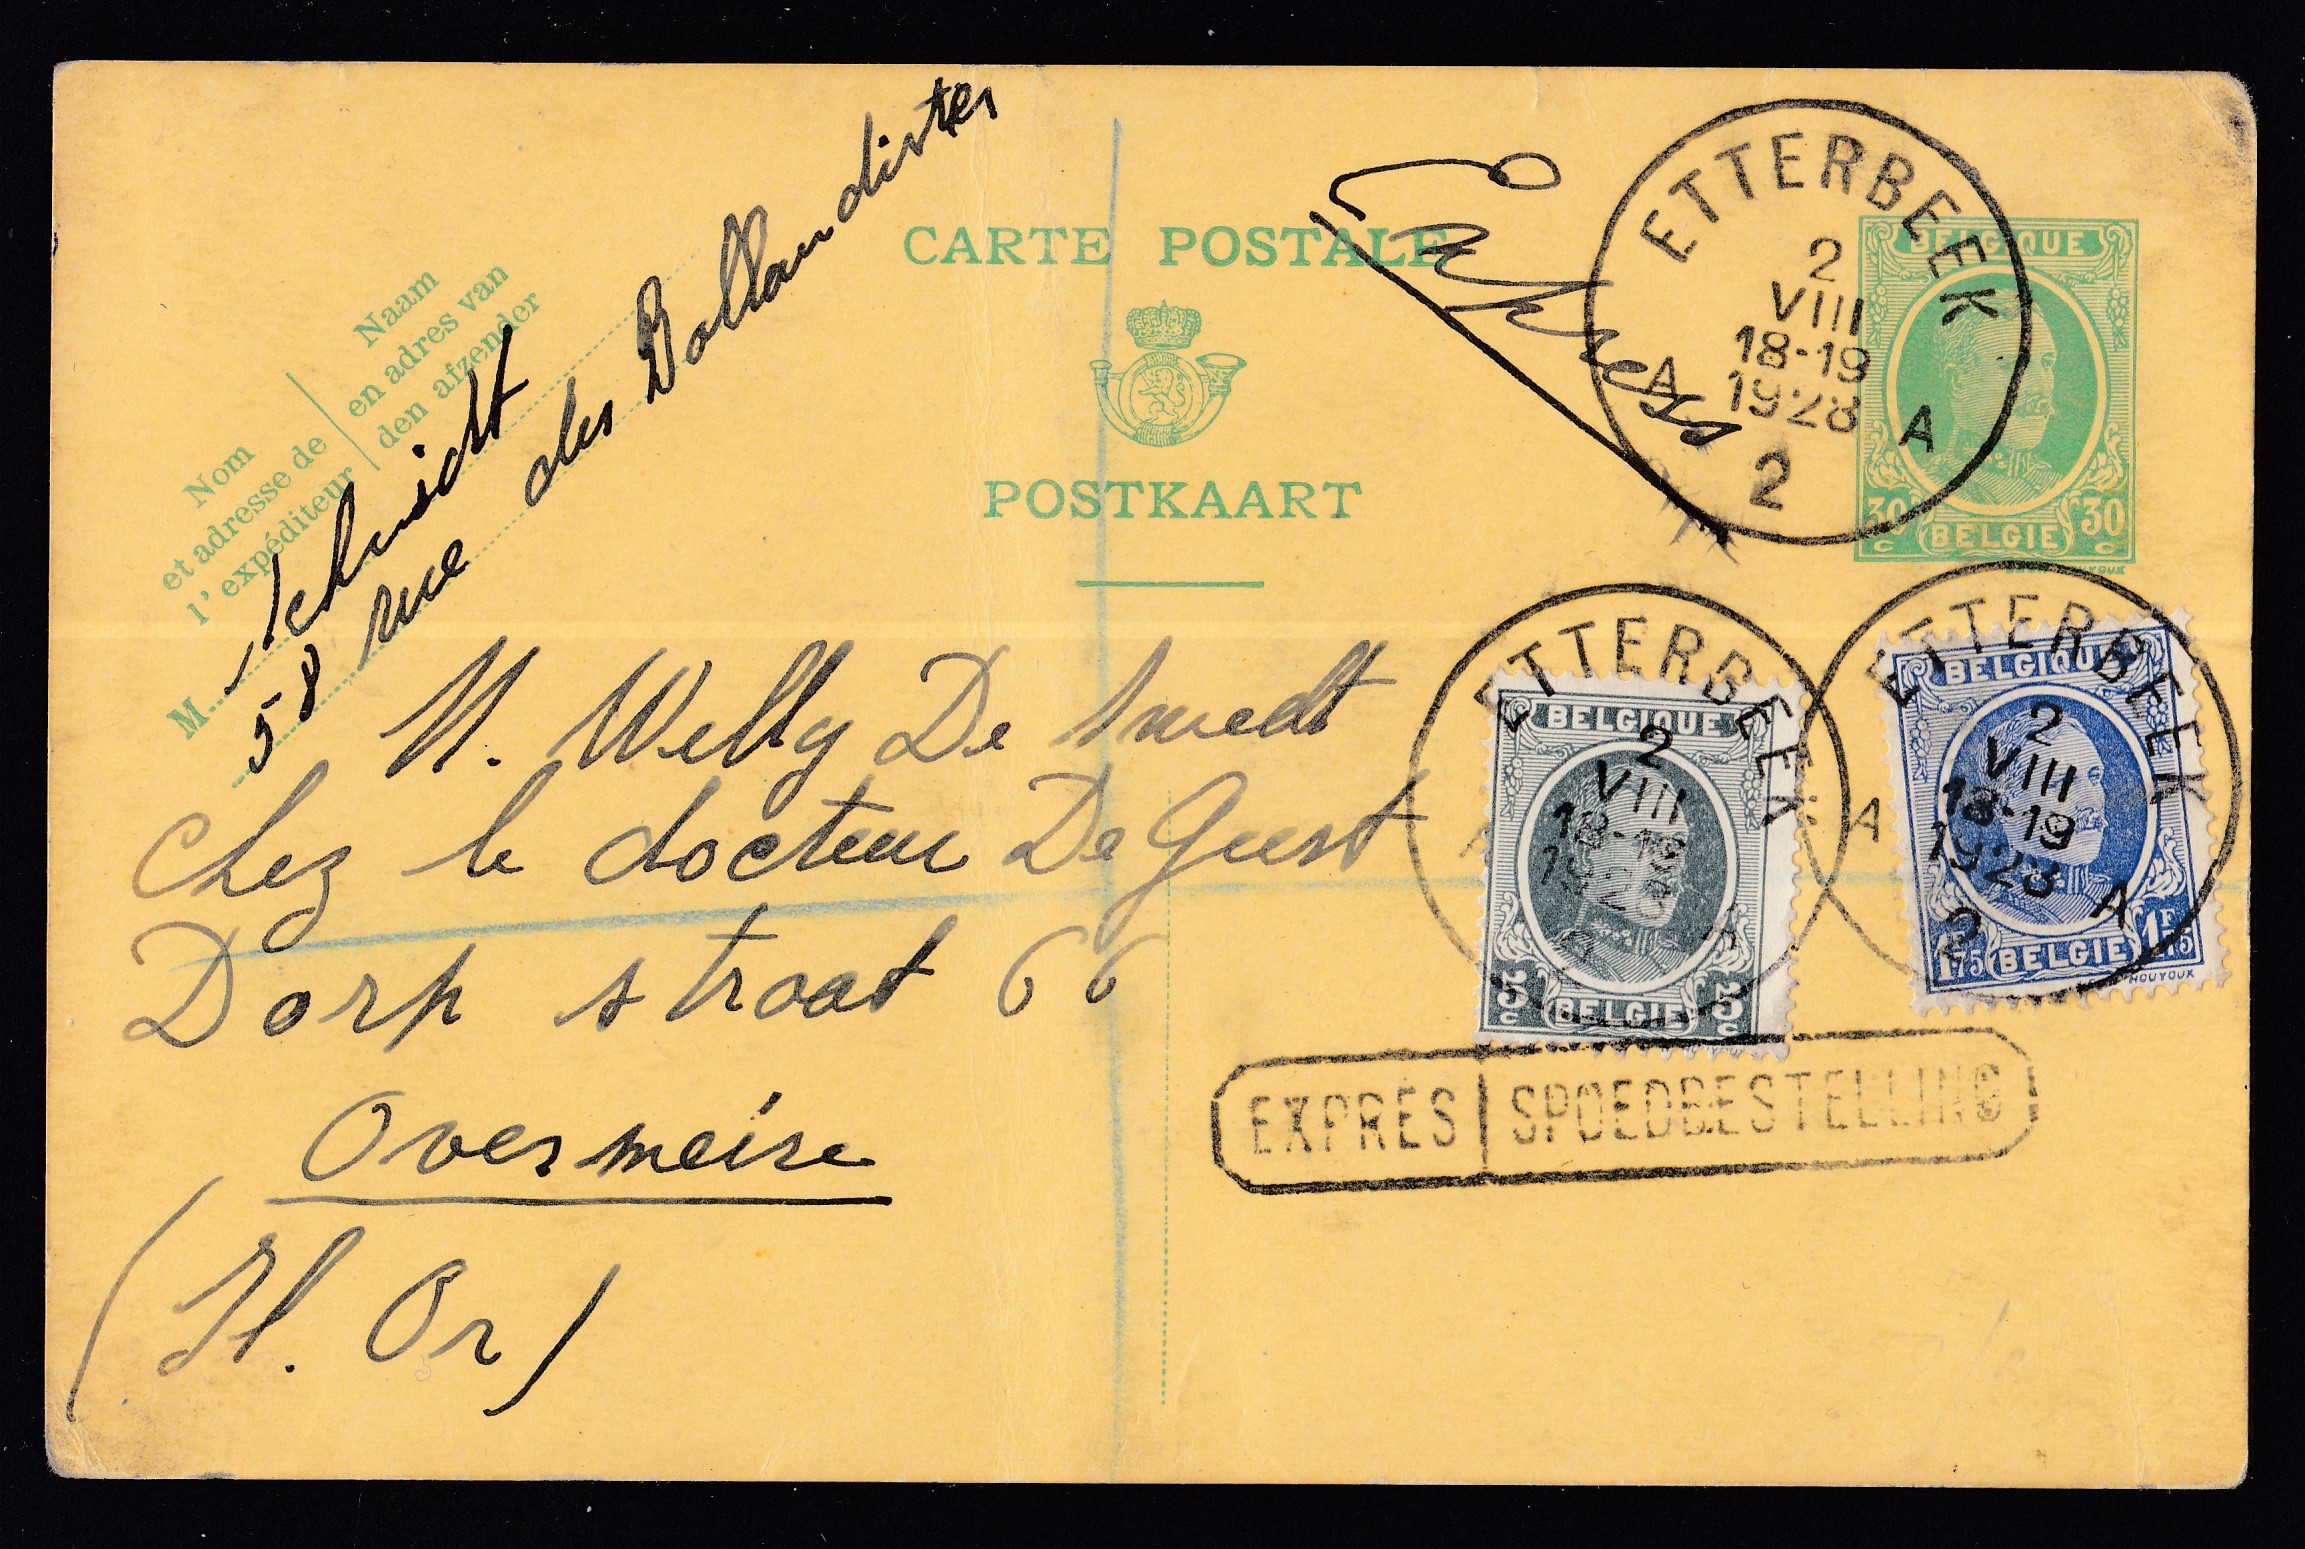 Nom
et adresse de
l'expéditeur
Naam
en adres van
den afzender
M. Schmidt
58 rue des Bollandistes
CARTE POSTALE
POSTKAART
Express
ETTERBEEK
2
VIII
18-19
1928
A A
2
BELGIQUE
30 c 30 c
BELGIE
HOUYOUX
M. Willy De Smedt
Chez le docteur De Geest
Dorp straat 66
Overmeire
(Fl. Or)
ETTERBEEK
2
VIII
18-19
1928
2
BELGIQUE
5 c 5 c
BELGIE
ETTERBEEK
2
VIII
18-19
1928
A A
2
BELGIQUE
1F75 BELGIE 1F75
HOUYOUX
EXPRÈS SPOEDBESTELLING